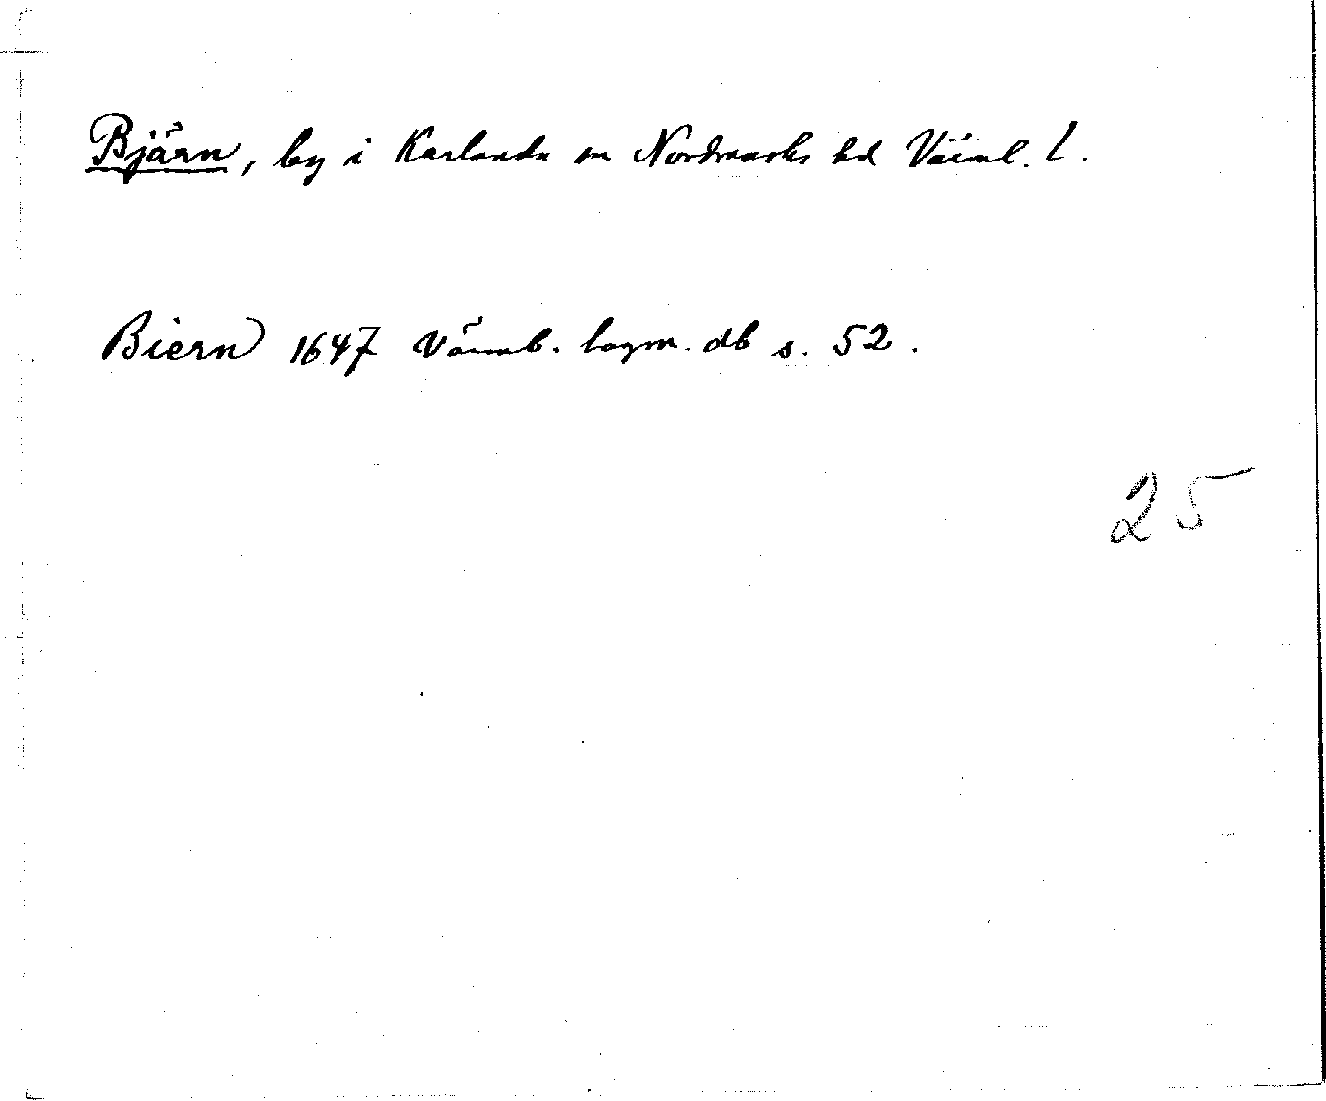 Bjärn, by i Karlanda sn Nordmarks hd Värml. l.
Biern 1647 Värml. lagm. db s. 52.
25